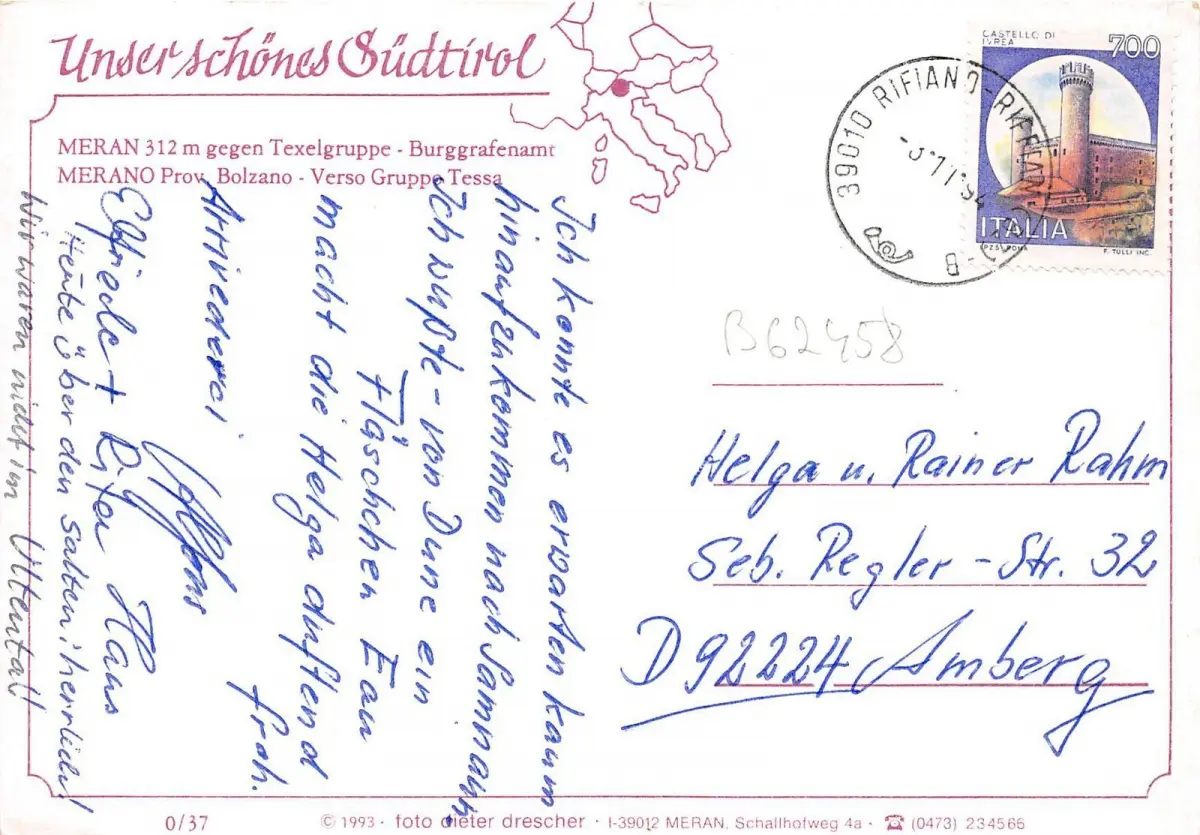 Unser schönes Südtirol
MERAN 312 m gegen Texelgruppe - Burggrafenamt
MERANO Prov. Bolzano - Verso Gruppo Tessa
CASTELLO DI
IVREA
700
ITALIA
P.Z.S. ROMA
F. TULLI INC.
39010 RIFIANO-RIFFIAN
B62458
Ich konnte es erwarten kaum
hinaufzukommen nach Samnaun,
Ich wußte - von Dune ein
Fläschchen Eau
macht die Helga duftend
froh.
Arrivederci
Alfons
Elfriede + Rita Haus
Heute über den Salten: herrlich!
Wir waren nicht im Ultental!
Helga u. Rainer Rahm
Seb. Regler-Str. 32
D92224 Amberg
0/37
© 1993 · foto dieter drescher · I-39012 MERAN, Schallhofweg 4a · ☎ (0473) 234566